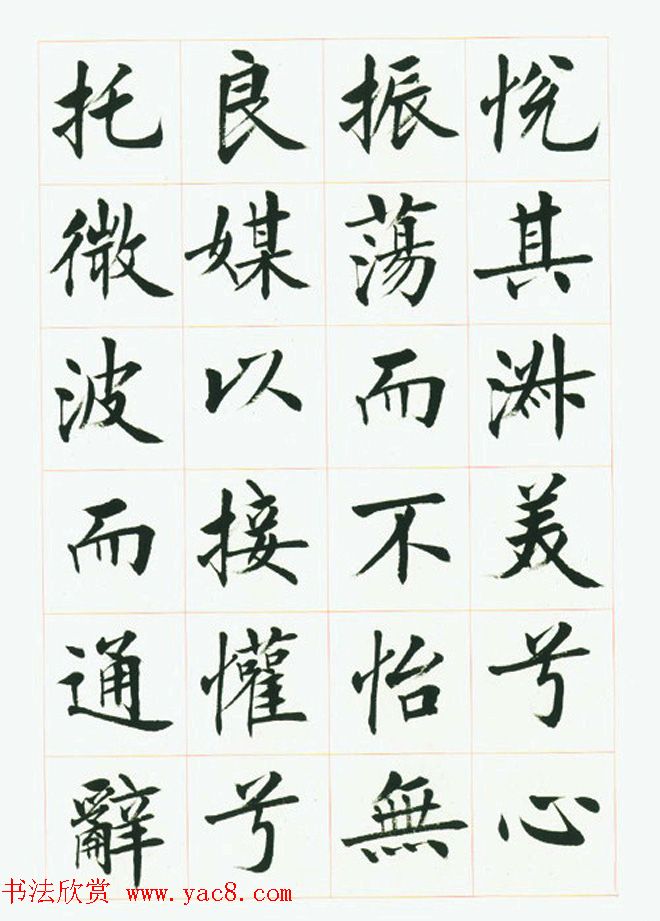 悅其淋美兮心
振蕩而不怡兮無
良媒以接懽兮
托微波而通辭
书法欣赏 www.yac8.com